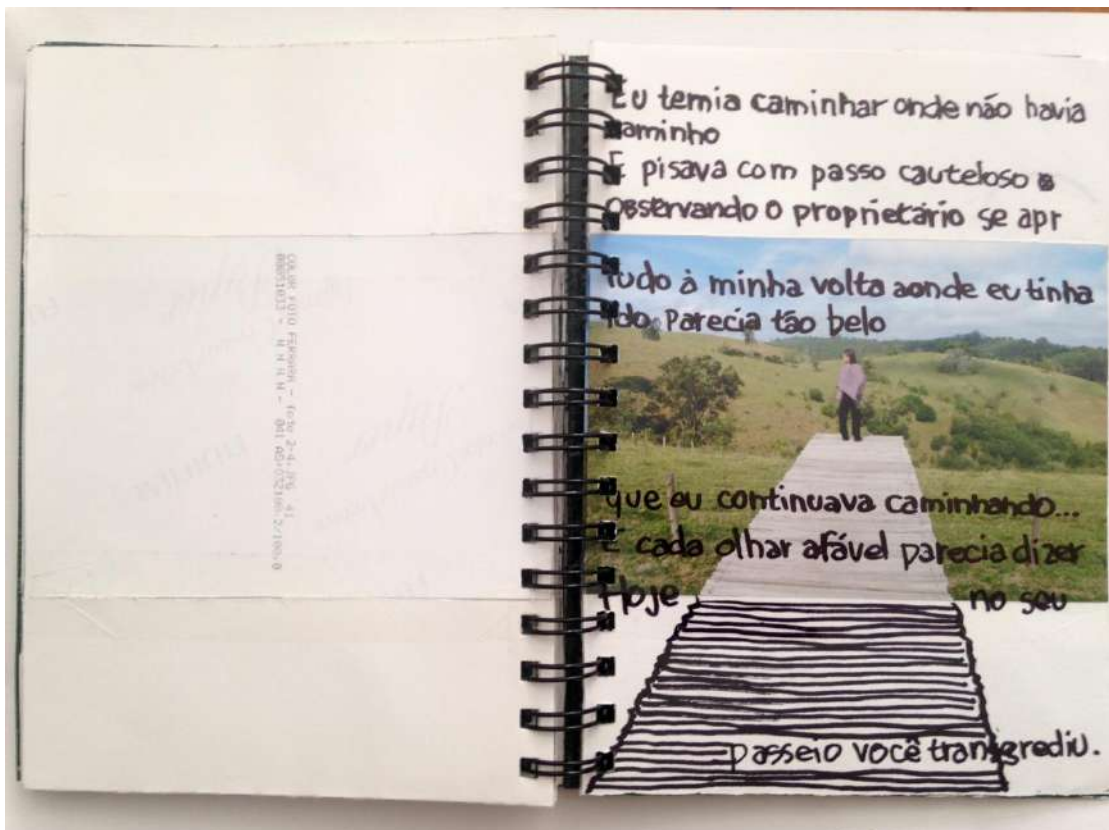 Eu temia caminhar onde não havia
caminho
E pisava com passo cauteloso e
observando o proprietário se apr
Tudo à minha volta aonde eu tinha
ido Parecia tão belo
que eu continuava caminhando...
E cada olhar afável parecia dizer
Hoje no seu
passeio você transgrediu.
COLOR FOTO FERRARA - foto 2-4.JPG 41